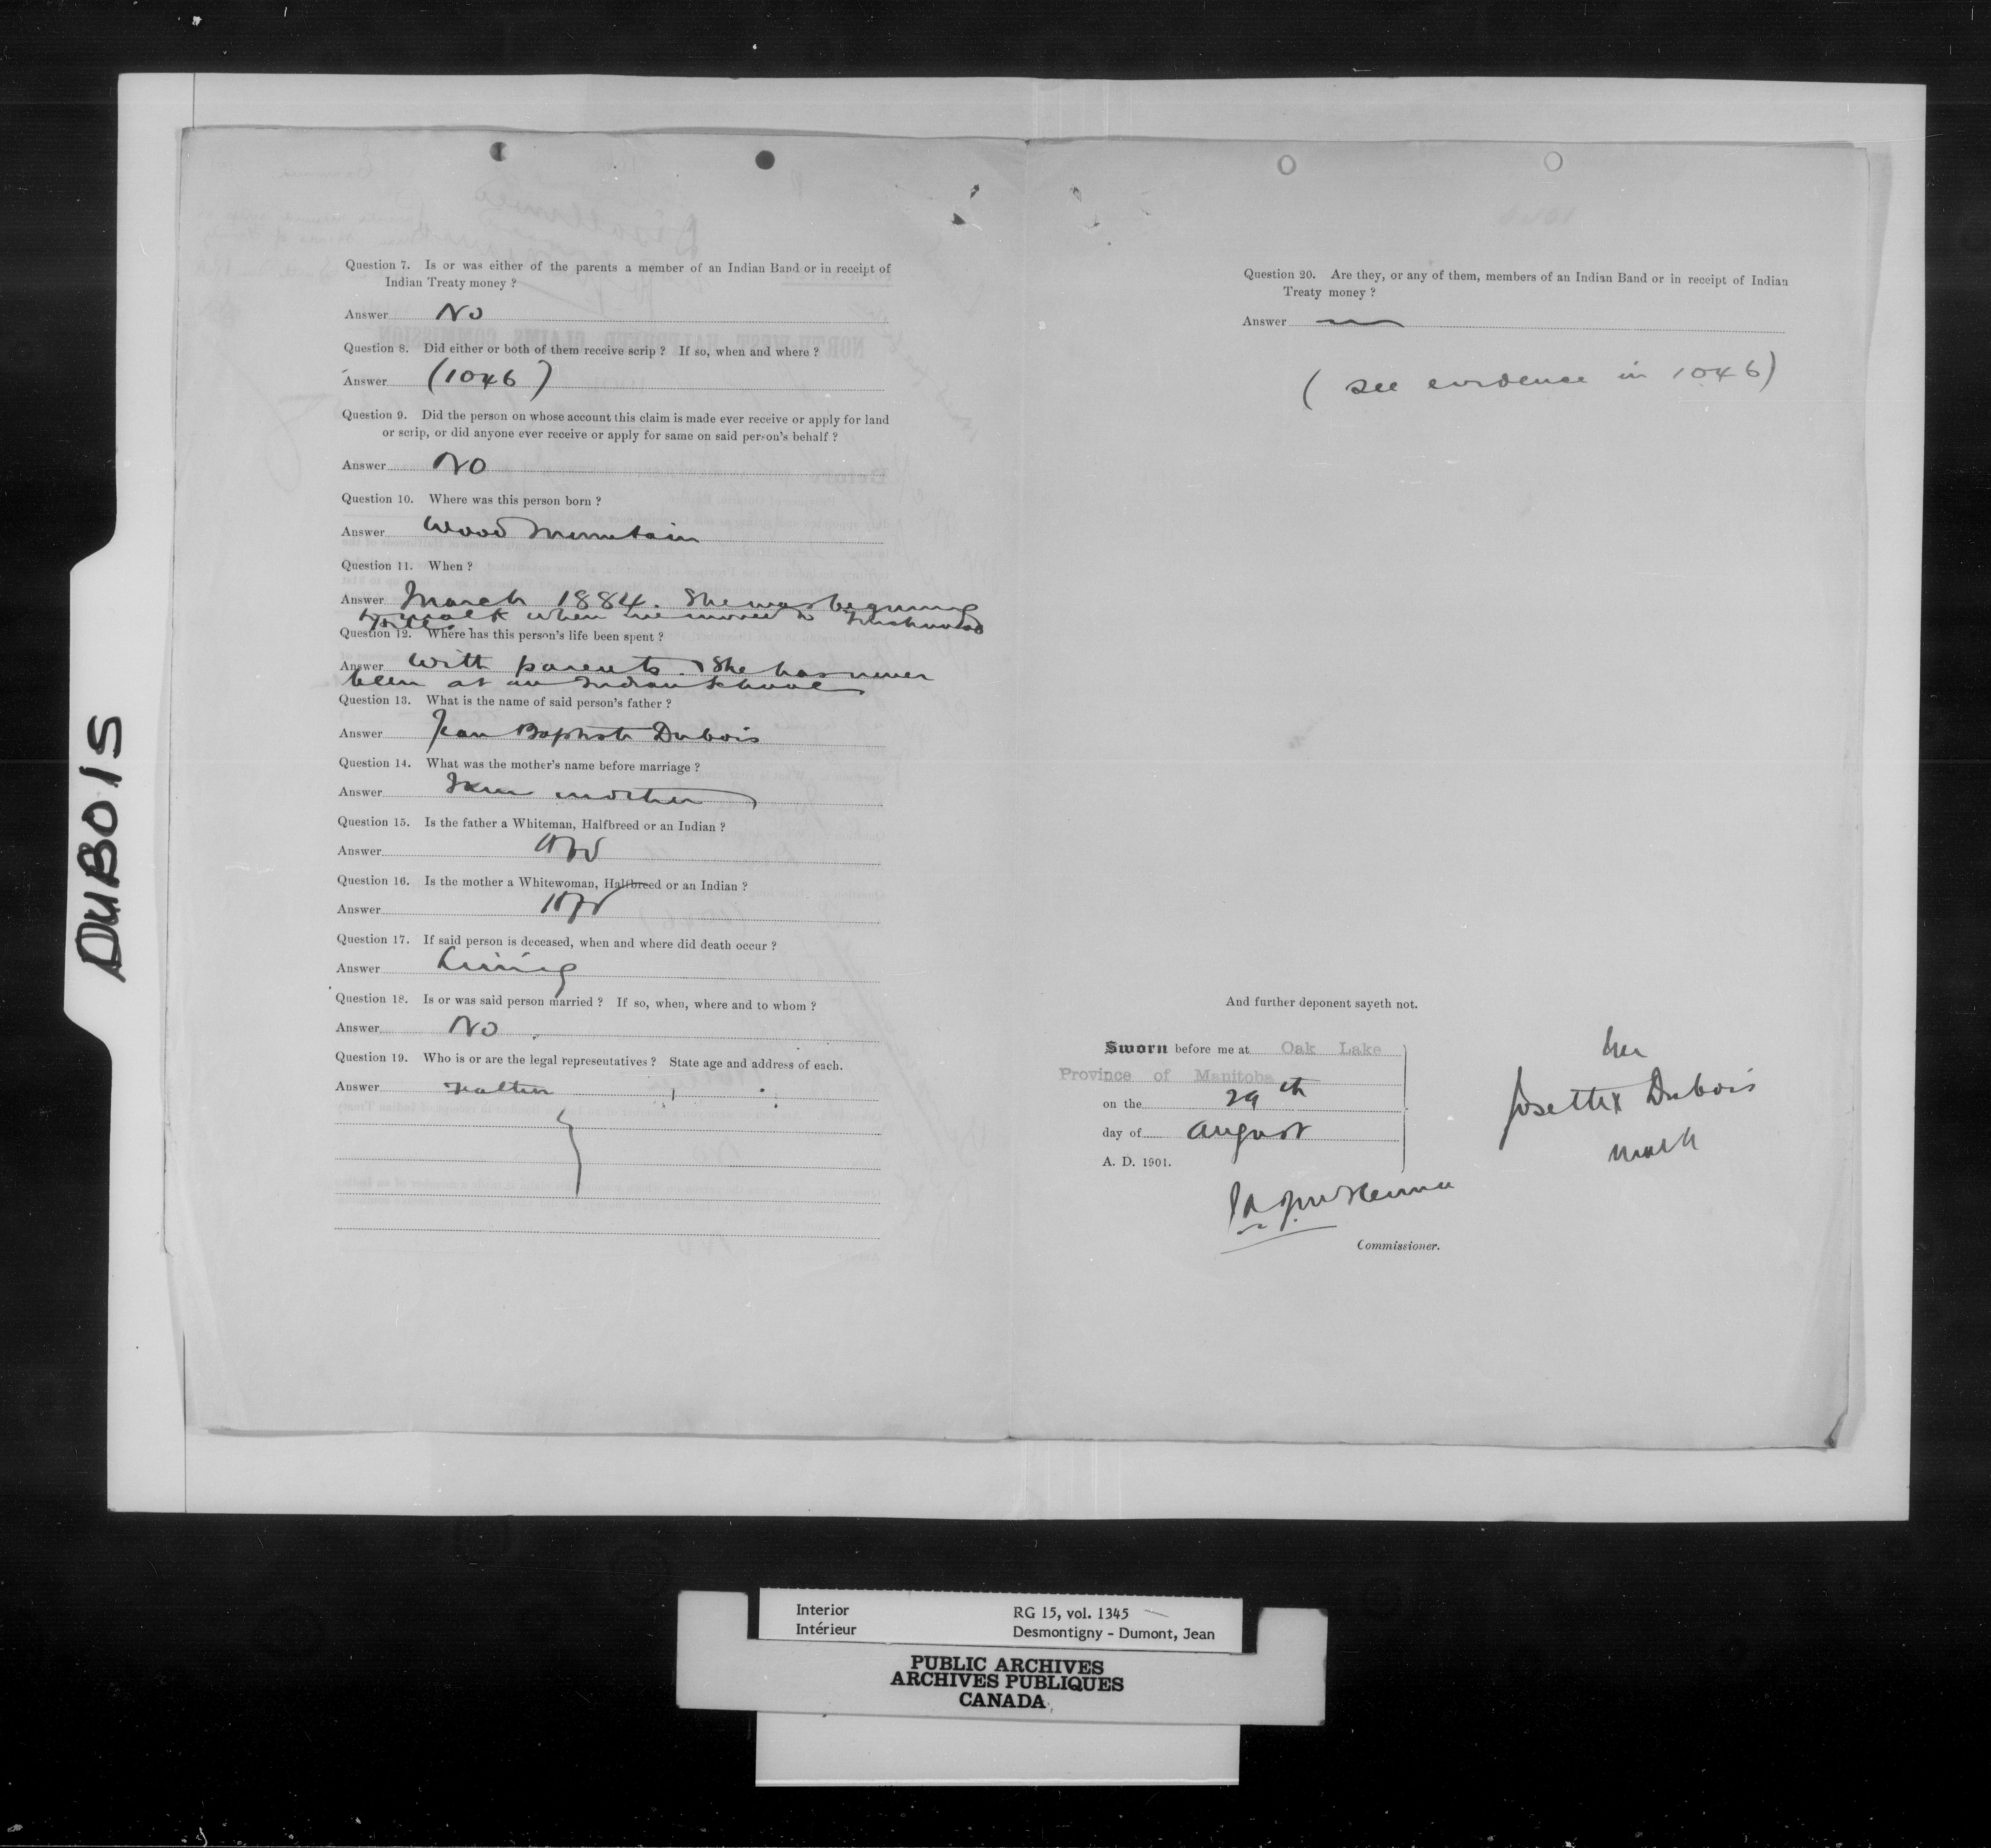 DUBOIS
Question 7. Is or was either of the parents a member of an Indian Band or in receipt of
Indian Treaty money ?
Answer No
Question 8. Did either or both of them receive scrip ? If so, when and where ?
Answer (1046)
Question 9. Did the person on whose account this claim is made ever receive or apply for land
or scrip, or did anyone ever receive or apply for same on said person's behalf ?
Answer No
Question 10. Where was this person born ?
Answer Wood Mountain
Question 11. When ?
Answer March 1884. She was beginning
to walk when we moved to Touchwood
Hills.
Question 12. Where has this person's life been spent ?
Answer With parents. She has never
been at an Indian School
Question 13. What is the name of said person's father ?
Answer Jean Baptiste Dubois
Question 14. What was the mother's name before marriage ?
Answer I am mother
Question 15. Is the father a Whiteman, Halfbreed or an Indian ?
Answer
Question 16. Is the mother a Whitewoman, Halfbreed or an Indian ?
Answer
Question 17. If said person is deceased, when and where did death occur ?
Answer Living
Question 18. Is or was said person married ? If so, when, where and to whom ?
Answer No
Question 19. Who is or are the legal representatives ? State age and address of each.
Answer Father
Question 20. Are they, or any of them, members of an Indian Band or in receipt of Indian
Treaty money ?
Answer
(see evidence in 1046)
And further deponent sayeth not.
Sworn before me at Oak Lake
Province of Manitoba
on the 29th
day of August
A. D. 1901.
her
Josette X Dubois
mark
Commissioner.
Interior RG 15, vol. 1345
Intérieur Desmontigny - Dumont, Jean
PUBLIC ARCHIVES
ARCHIVES PUBLIQUES
CANADA